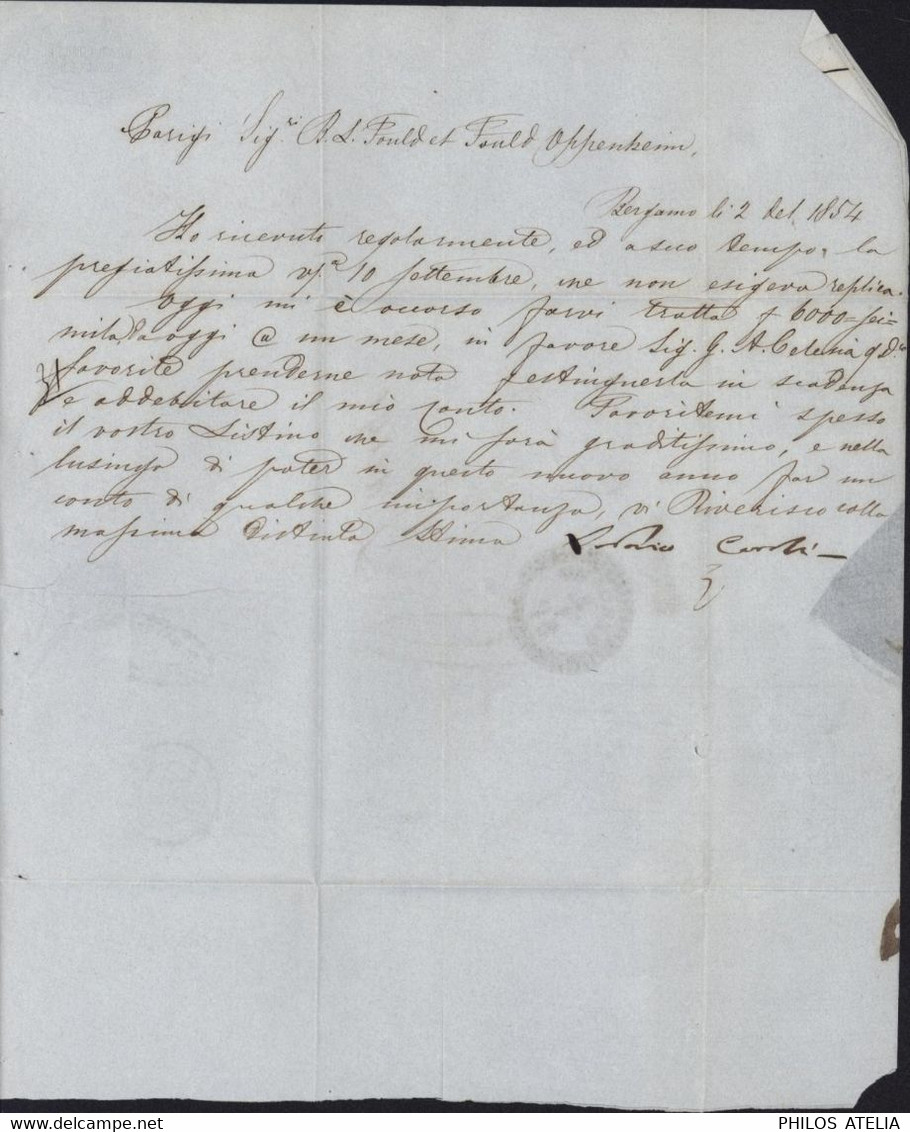 Parigi Sig.ri B. L. Fould et Fould Oppenheim,
Bergamo li 2 del 1854
Ho ricevuto regolarmente, ed a suo tempo, la
pregiatissima v/a 10 Settembre, che non esigeva replica.
Oggi mi è occorso farvi tratta f 6000= sei=
mila da oggi @ un mese, in favore Sig. G. A. Celesia
favorite prenderne nota in scadenza
e addebitare il mio conto. Favoritemi spesso
il vostro Listino che mi sarà graditissimo, e nella
lusinga di poter in questo nuovo anno far un
conto di qualche importanza, vi Riverisco colla
massima distinta stima
PHILOS ATELIA